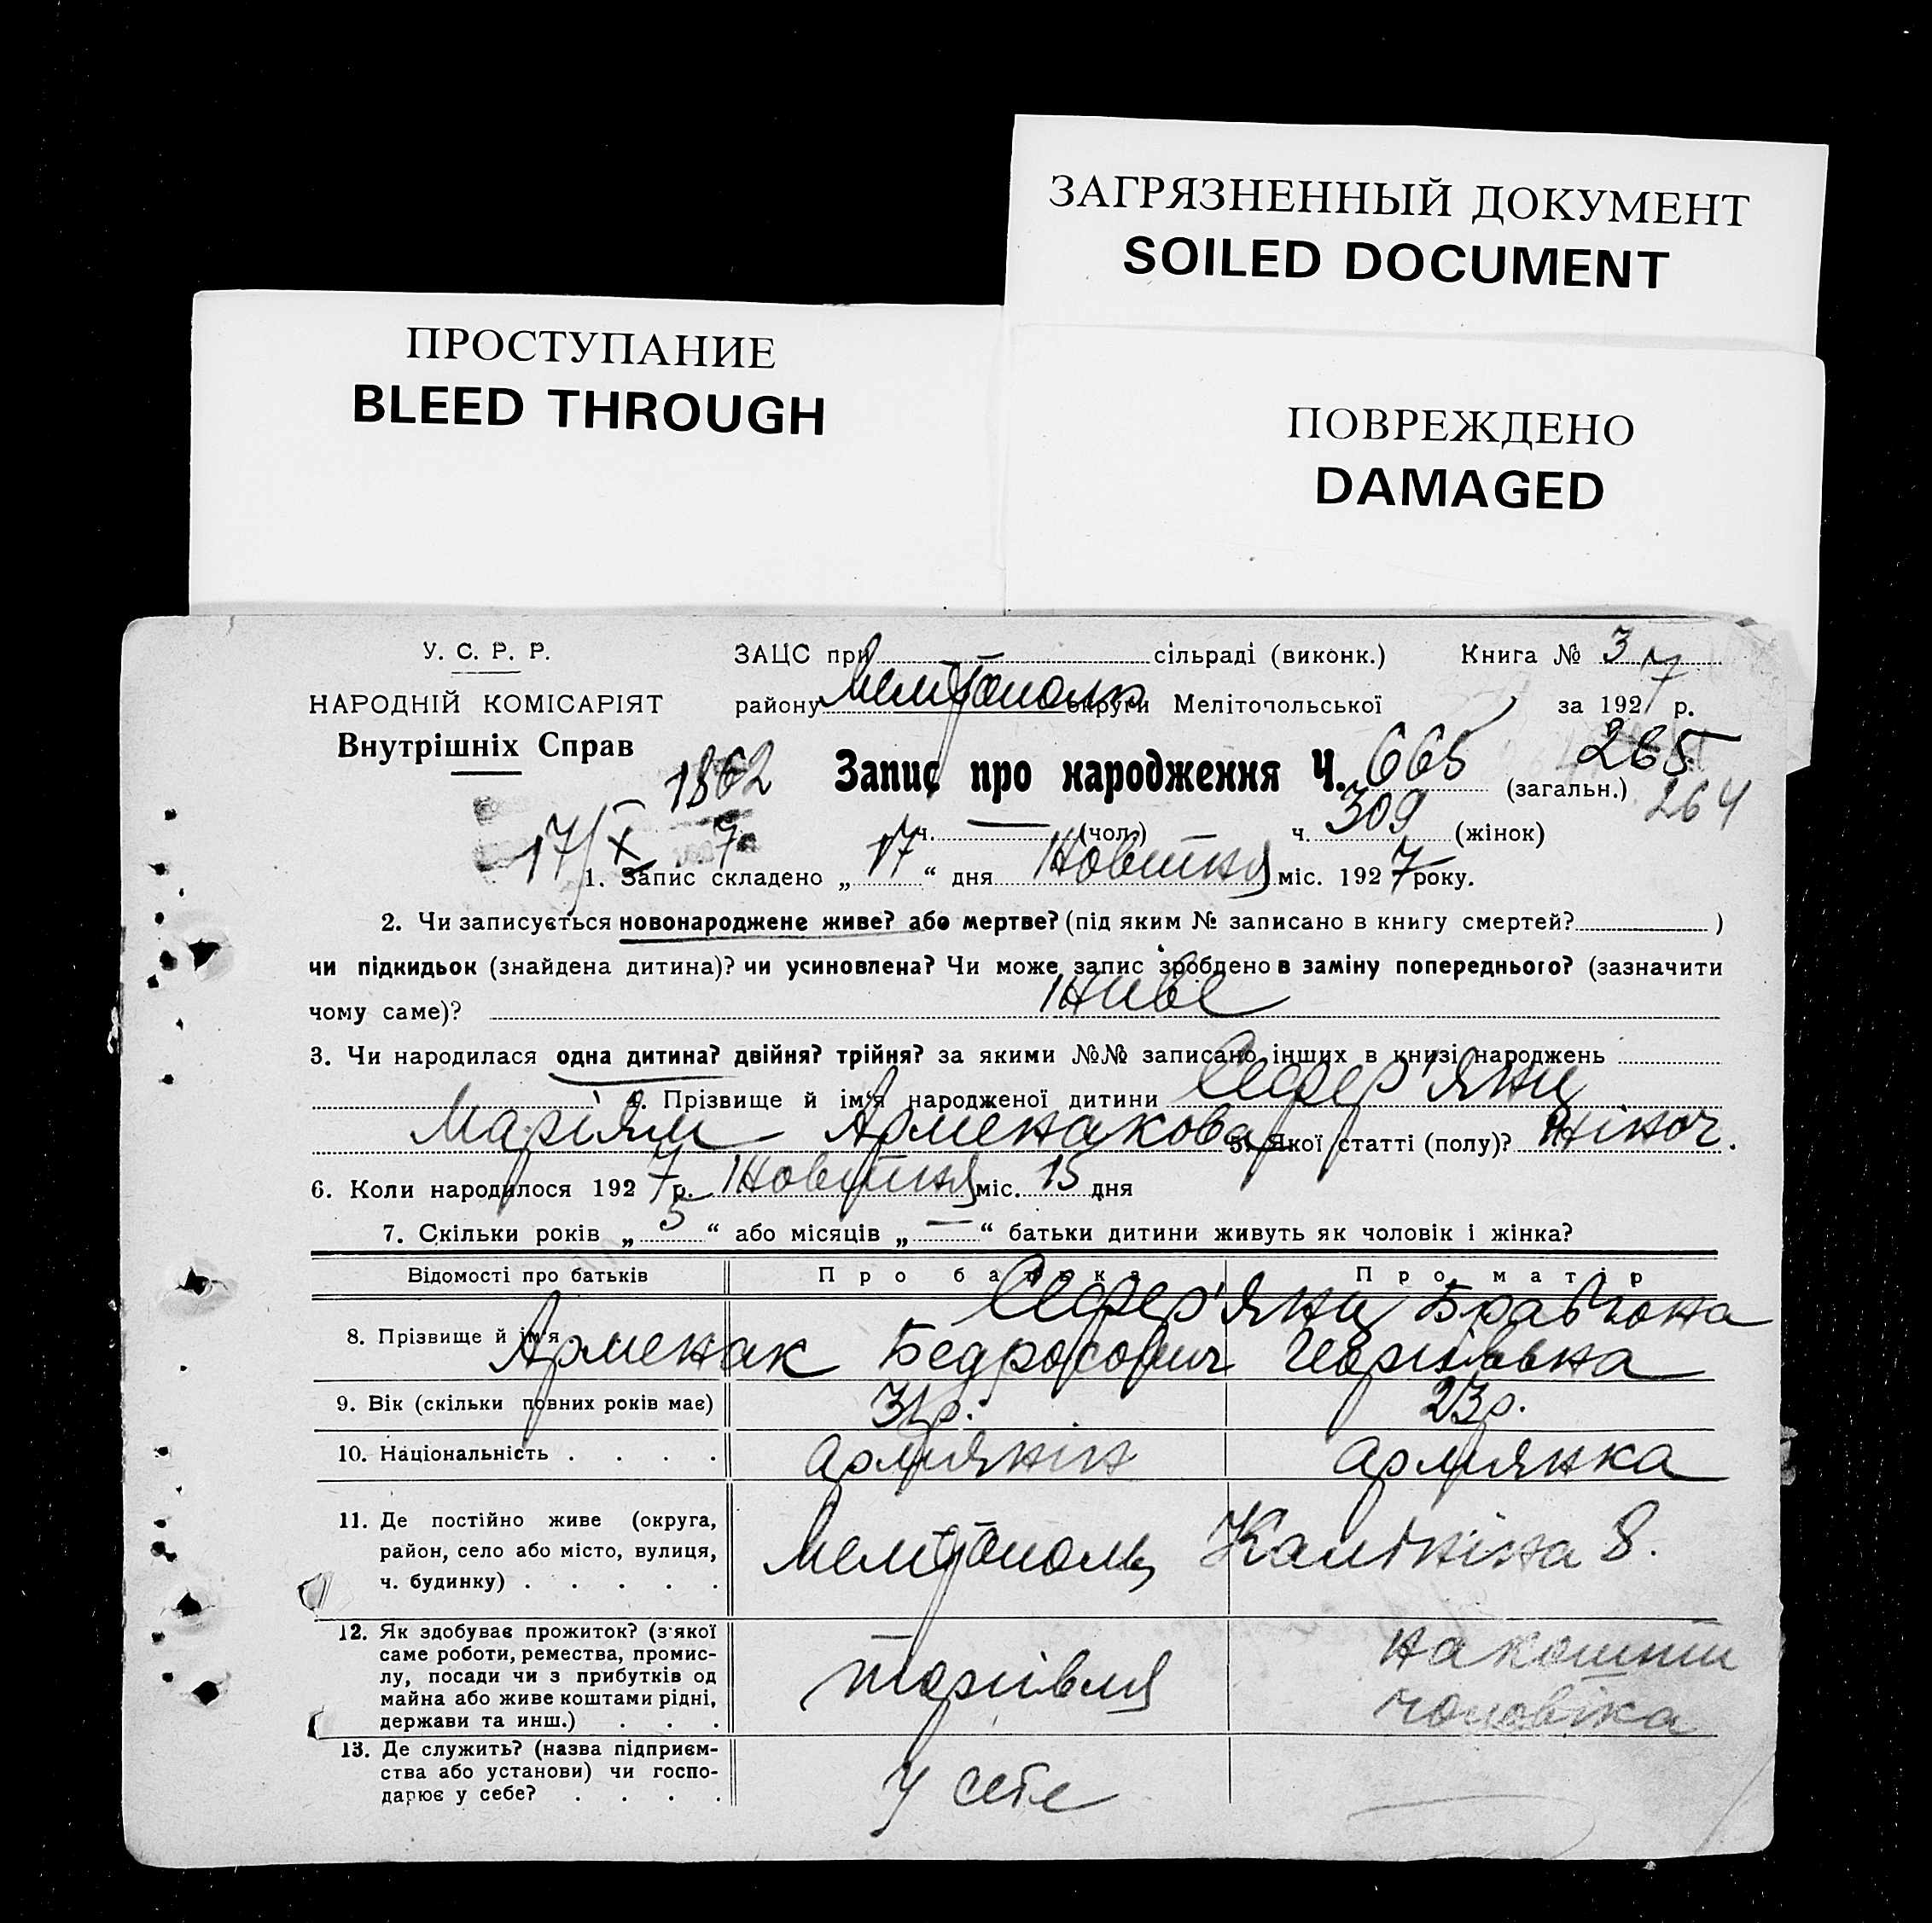 ЗАГРЯЗНЕННЫЙ ДОКУМЕНТ
SOILED DOCUMENT
ПРОСТУПАНИЕ
BLEED THROUGH
ПОВРЕЖДЕНО
DAMAGED
У. С. Р. Р.
НАРОДНІЙ КОМІСАРІЯТ
Внутрішніх Справ
ЗАЦС при сільраді (виконк.) Книга № 3
району Мелітопольск округи Мелітопольської за 1927 р.
1862 Запис про народження Ч. 665 (загальн.) 265
264
17/X 7 ч. — (чол.) ч. 309 (жінок)
1. Запис складено „17“ дня Жовтня міс. 1927 року.
2. Чи записується новонароджене живе? або мертве? (під яким № записано в книгу смертей? )
чи підкидьок (знайдена дитина)? чи усиновлена? Чи може запис зроблено в заміну попереднього? (зазначити
чому саме)? Живе
3. Чи народилася одна дитина? двійня? трійня? за якими №№ записано інших в книзі народжень
4. Прізвище й ім'я народженої дитини Сефер'янц
Маріям Арменакова 5. Якої статті (полу)? жіноч.
6. Коли народилося 1927 р. Жовтня міс. 15 дня
7. Скільки років „5“ або місяців „—“ батьки дитини живуть як чоловік і жінка?
Відомості про батьків Про батька Про матір
8. Прізвище й ім'я Сефер'янц
Арменак Бедросович Георгіївна
9. Вік (скільки повних років має) 31р. 23р.
10. Національність . . . . армянін армянка
11. Де постійно живе (округа,
район, село або місто, вулиця,
ч. будинку) . . . . .
Мелітополь Калініна 8.
12. Як здобуває прожиток? (з якої
саме роботи, ремества, промис-
лу, посади чи з прибутків од
майна або живе коштами рідні,
держави та инш.) . . .
торгівля
на кошти
чоловіка
13. Де служить? (назва підприєм-
ства або установи) чи госпо-
дарює у себе? . . . .
у себе